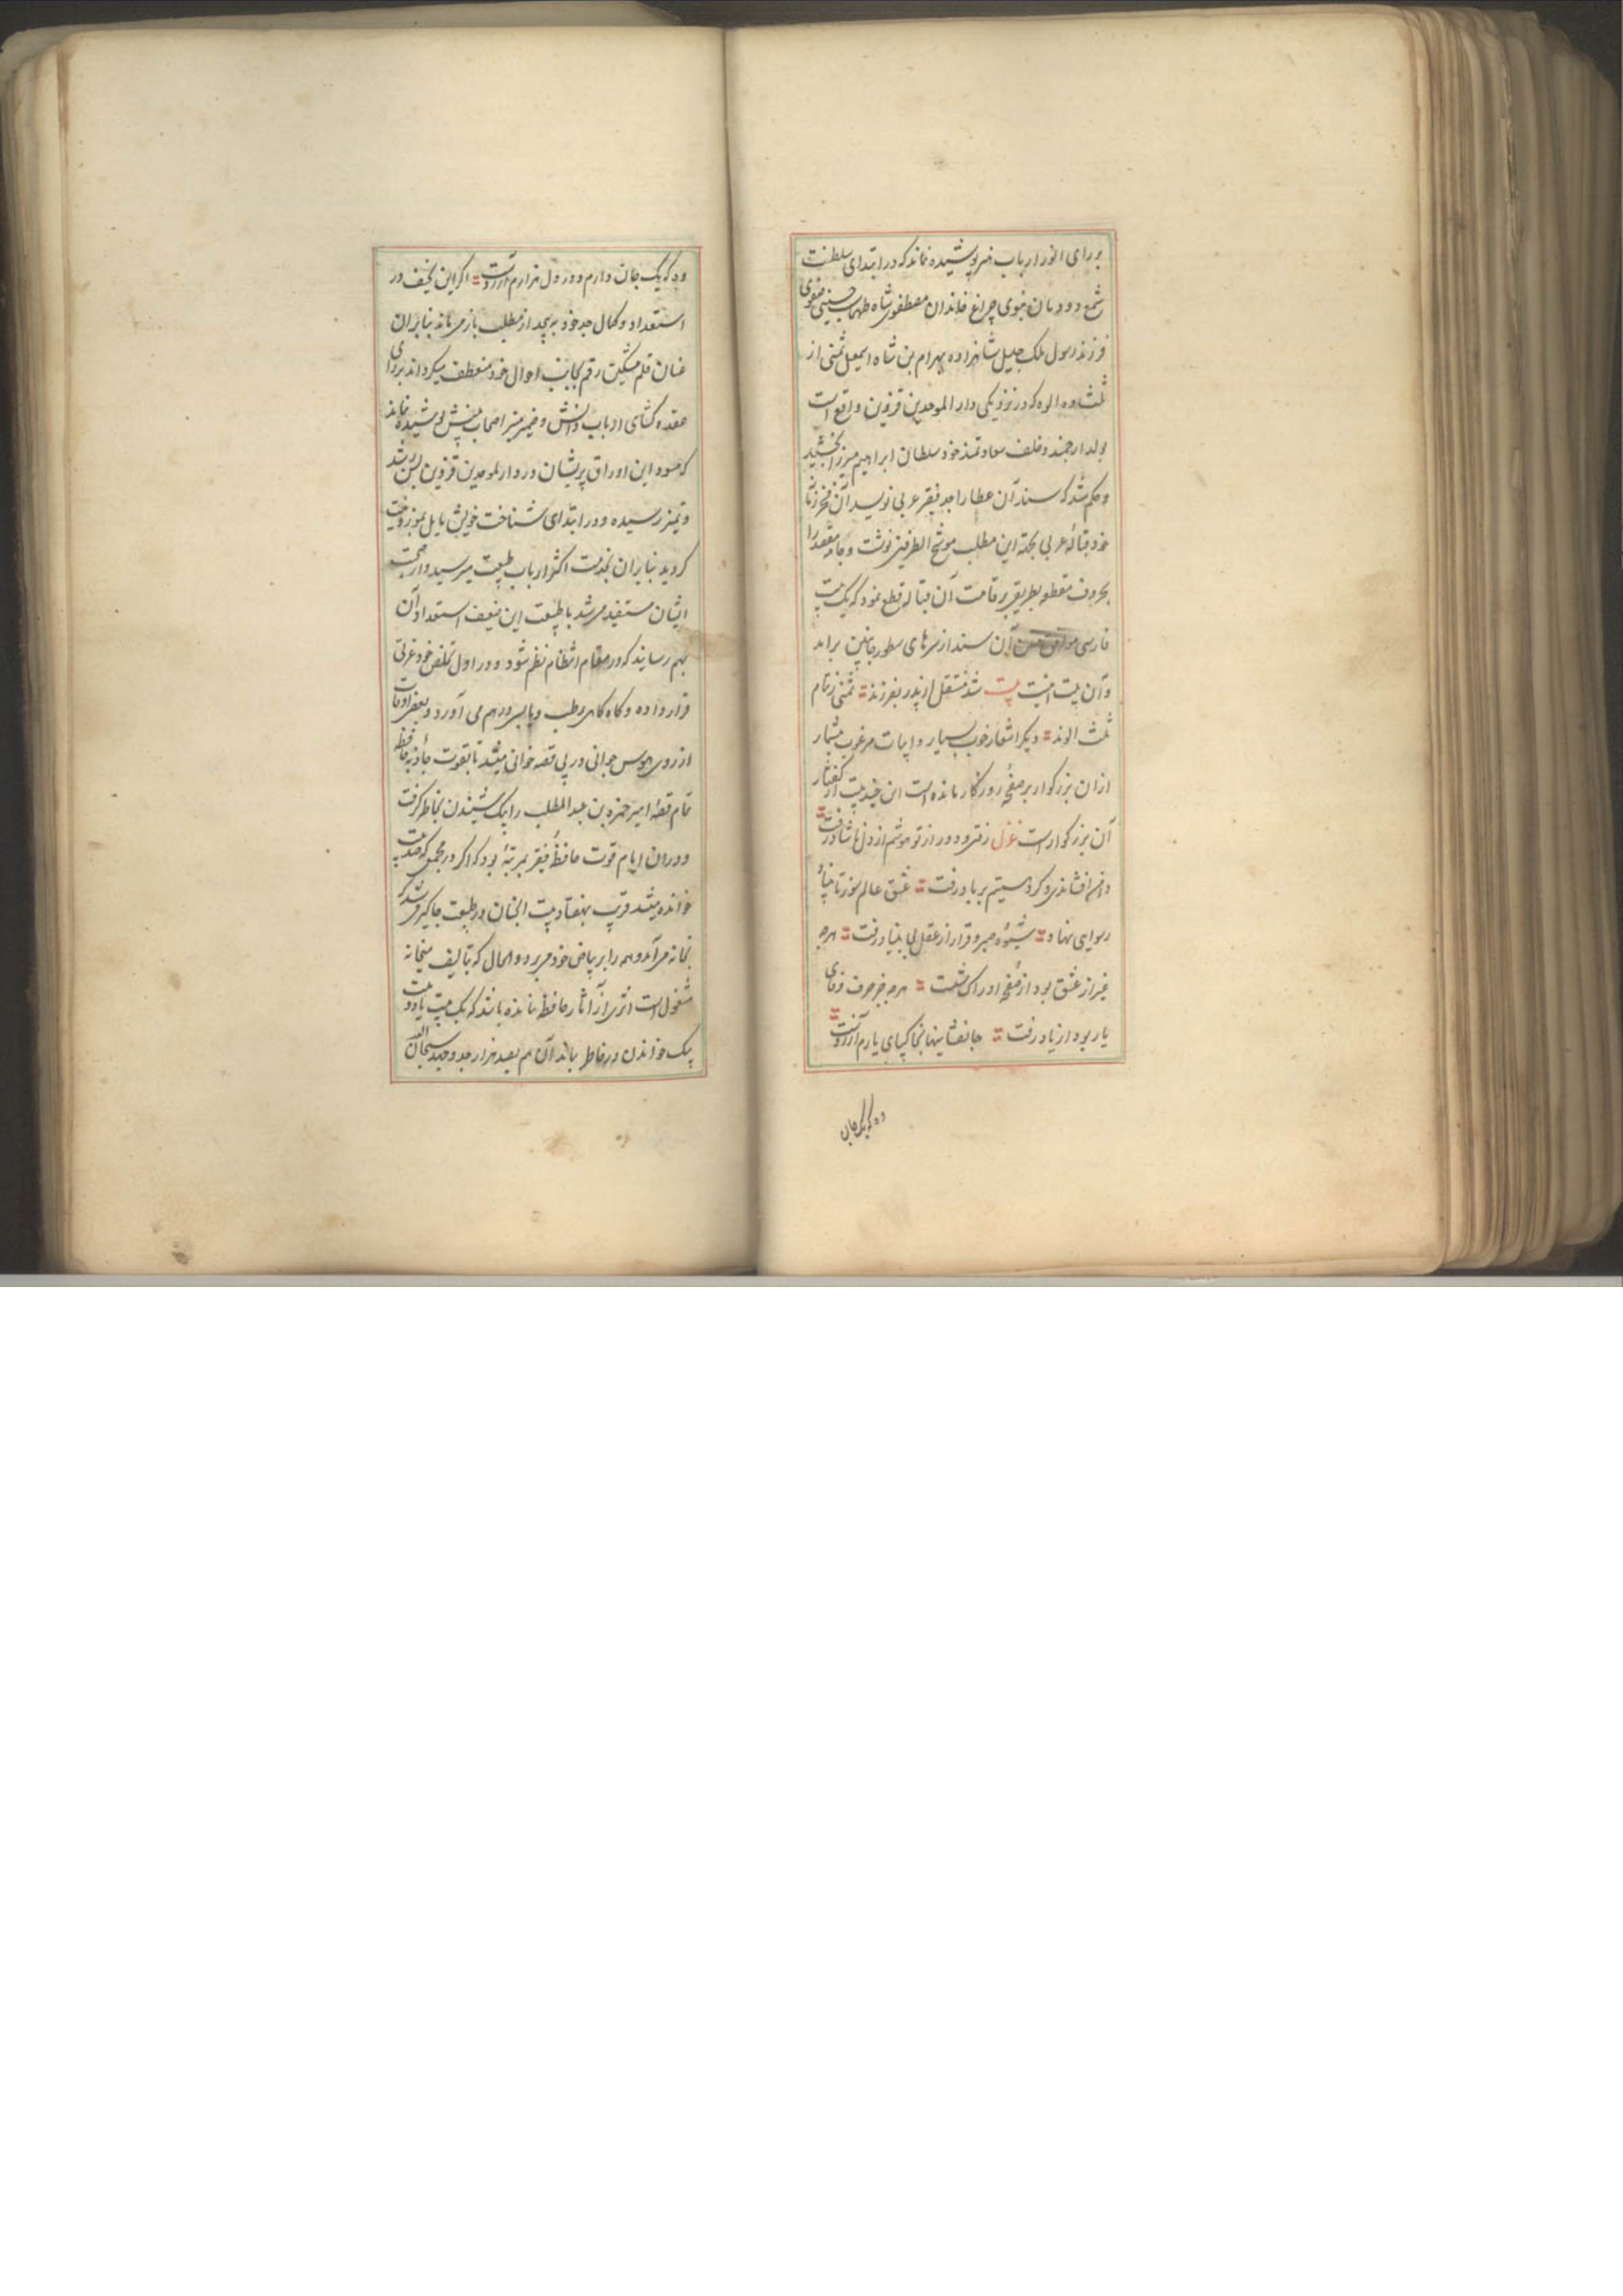 بر رای انور ارباب هنر پوشیده نماند که در ابتدای سلطنت
شمع دودمان نبوی چراغ خاندان مصطفوی شاه طهماسب حسینی صفوی
فرزند رسول ملک جلیل شاهزاده بهرام بن شاه اسمعیل ثمنی از
ثلث ده الوه که در نزدیکی دار الموحدین قزوین واقع است
بولد ارجمند و خلف سعادتمند خود سلطان ابراهیم میرزا بخشید
و حکم شد که سند آن عطا را جد فقیر عربی نویسد آن فخر زمان
خود قباله عربی بجهته این مطلب موشح الطرفین نوشت و جامه مقصد را
بحروف مقطعه بطریقی بر قامت آن قباله قطع نمود که یک بیت
فارسی موافق آن سند از سرهای سطور چنین براید
و آن بیت اینست بیت شد منتقل از پدر بفرزند = ثمنی ز تمام
ثلث الوند = دیگر اشعار خوب بسیار و ابیات مرغوب بیشمار
ازان بزرگوار بر صفحهٔ روزگار مانده است این چند بیت از گفتار
آن بزرگوار است غزل رفتی و دور از تو هوشم از دل ناشاد رفت =
دامن افشاندی و گرد هستیم بر باد رفت = عشق عالم سوز تا بنیاد
رسوایی نهاد = شیوهٔ صبر و قرار از عقل بی بنیاد رفت = هرچه
غیر از عشق بود از صفحهٔ ادراک شست = هرچه جز حرف وفای
یار بود از یاد رفت = جانفشانیها بخاکپای یارم آرزوست =
وه که یک جان
وه که یک جان دارم و در دل هزارم آرزوست = اگر این نحیف در
استعداد و کمال جد خود پیچد از مطلب باز میماند بنابران
عنان قلم مشکین رقم بجانب احوال خود منعطف میگرداند بر رای
عقده گشای ارباب دانش و ضمیر منیر اصحاب بینش پوشیده نماند
که مسود این اوراق پریشان در دار لموحدین قزوین بسن رشد
و تمیز رسیده و در ابتدای شناخت خویش مایل بموزونیت
گردید بنابران بخدمت اکثر ارباب طبیعت میرسید و از صحبت
ایشان مستفید میشد با طبیعت این ضعیف استعداد آن
بهم رسانید که در مقام انتظام نظم شود و در اول تخلص خود عزتی
قرار داده و گاه گاهی رطب و یابس در هم می آورد و بعضی اوقات
از روی هوس جوانی در پی قصه خوانی میشد تا بقوت جاذبه حافظه
تمام قصهٔ امیر حمزه بن عبد المطلب را بیک شنیدن بخاطر گرفت
و دران ایام قوت حافظهٔ فقیر بمرتبهٔ بود که اگر در مجمعی که صد بیت
خوانده میشد قریب بهفتاد بیت الجنان در طبیعت جا گیر میشد که
بخانه می آمد و همه را بر بیاض خود میبرد و الحال که بتالیف میخانه
مشغول است اثری از آثار حافظه نمانده باشد که یک بیت یا دو بیت
بیک خواندن در خاطر بماند آن هم بصد هزار جد و جهد سبحان الله